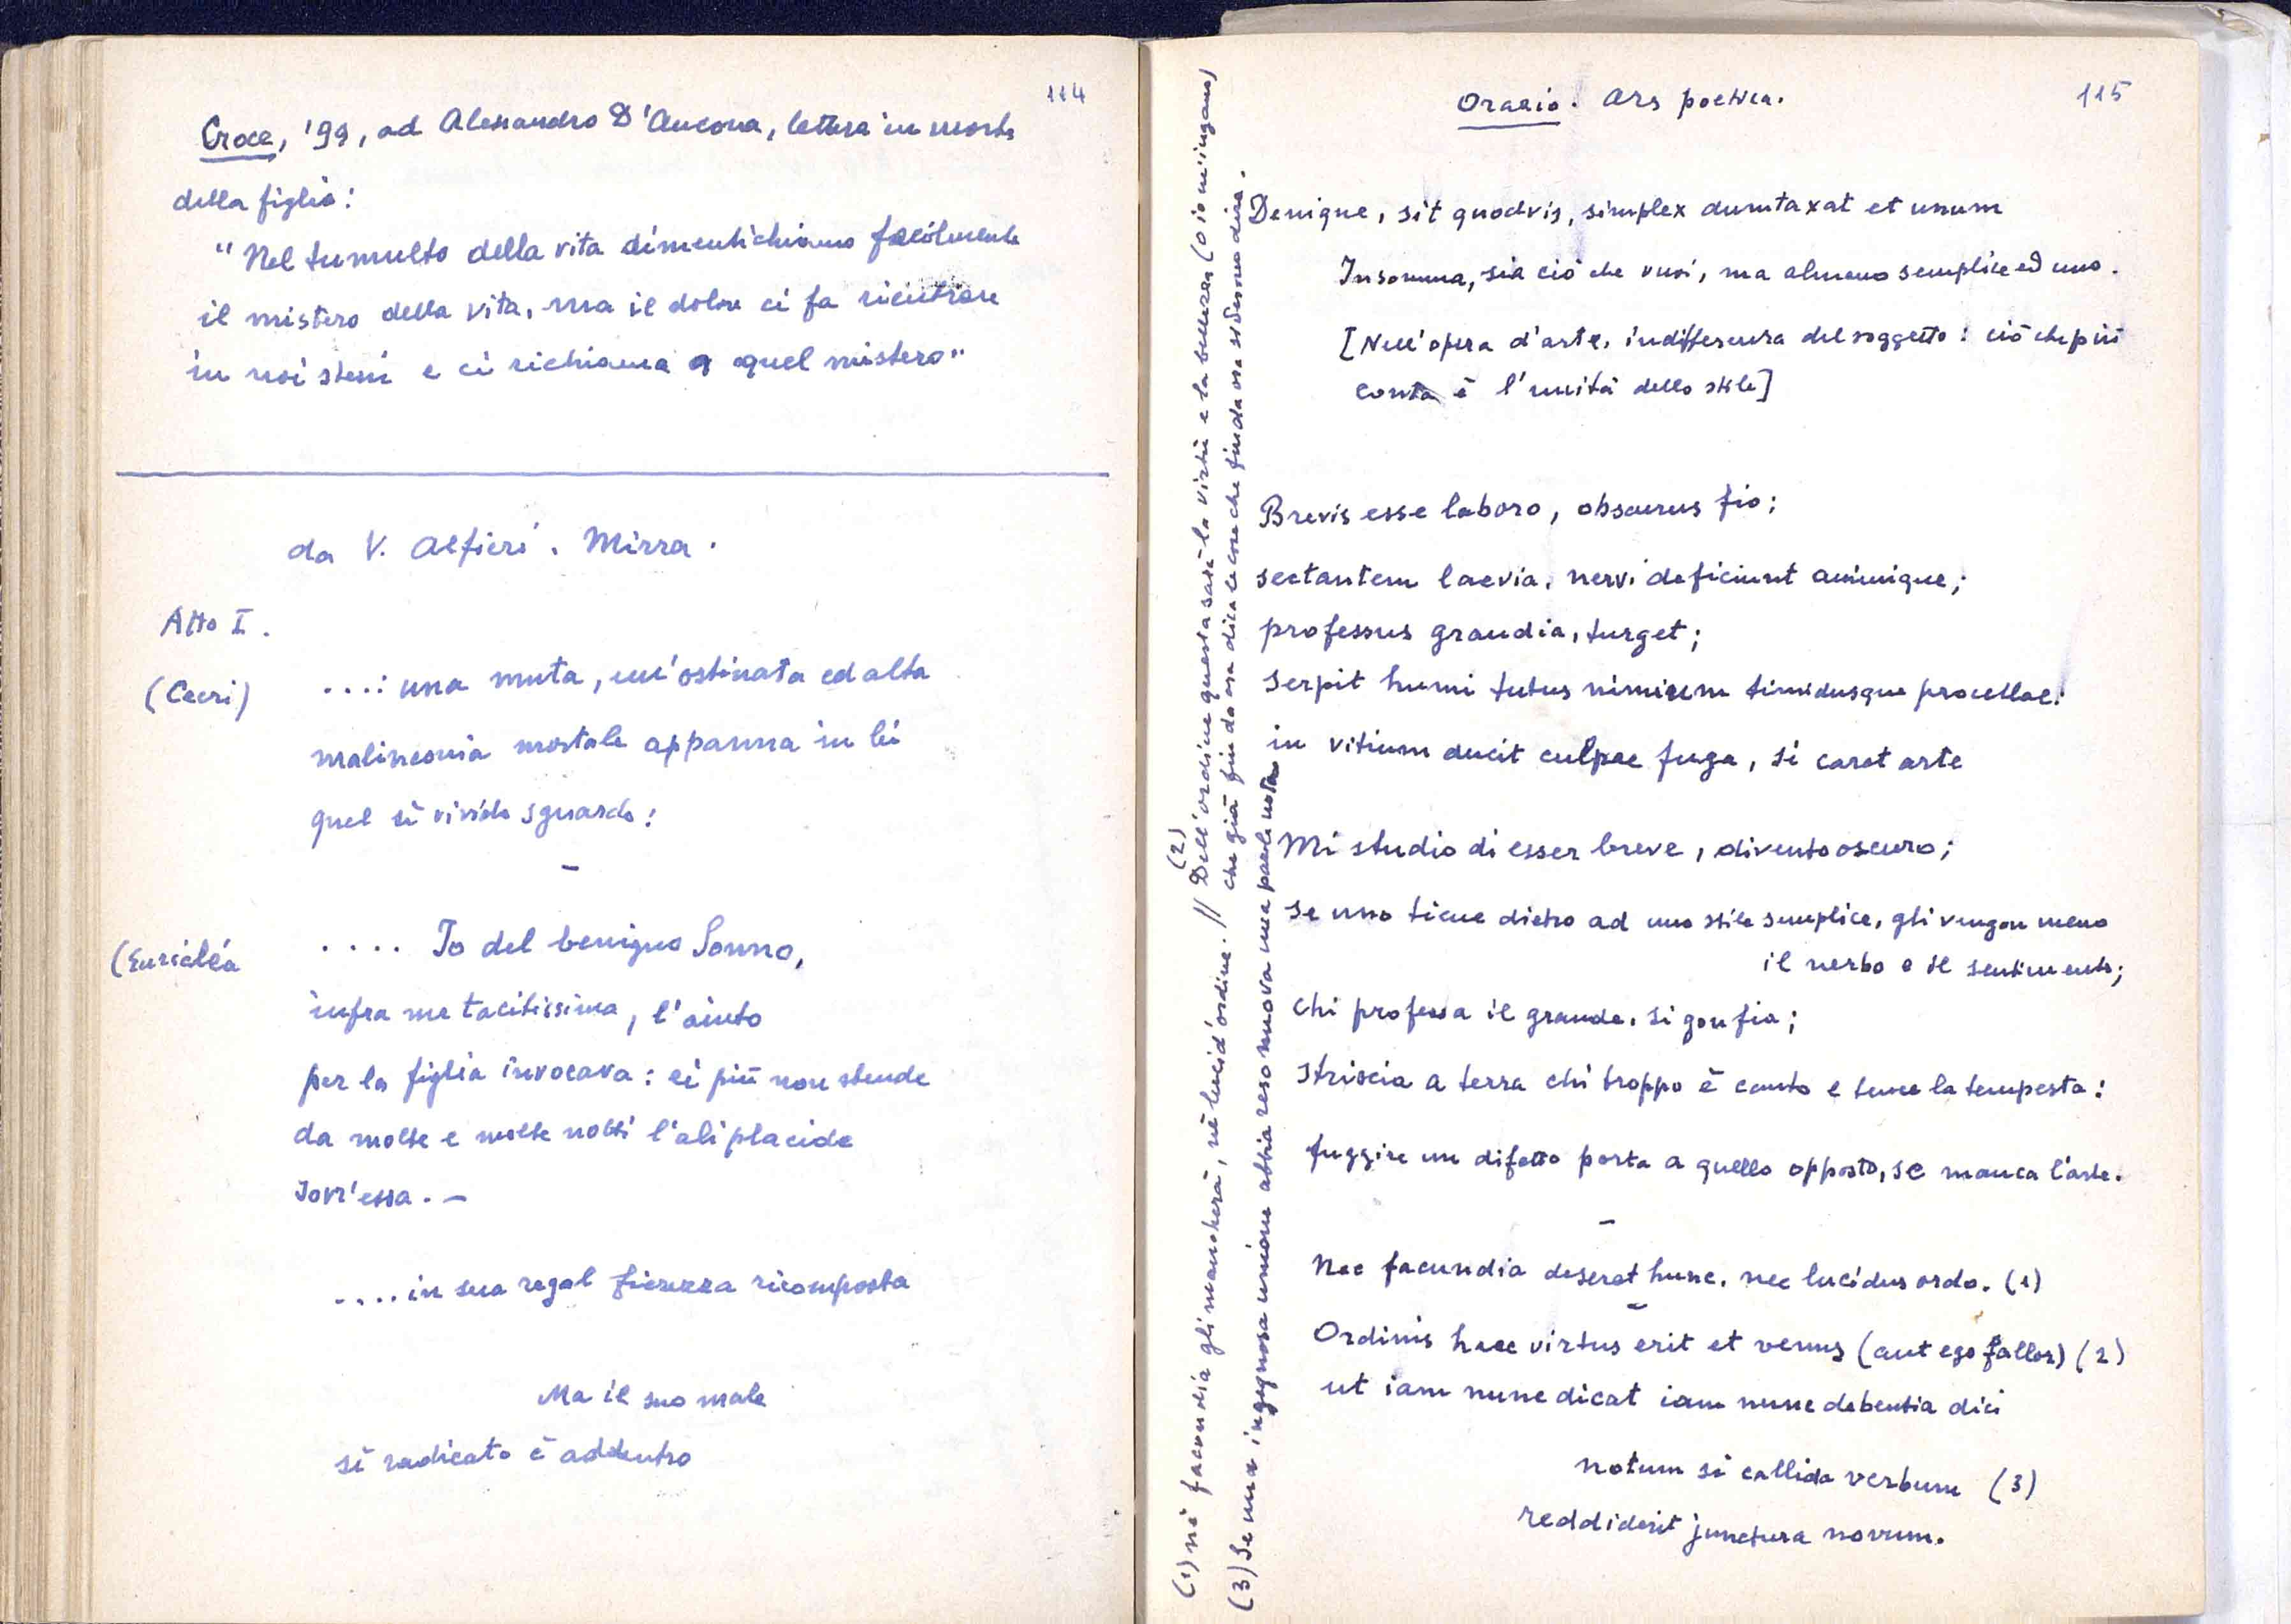 114
Croce, '99, ad Alessandro D'Ancona, lettera in morte
della figlia:
"Nel tumulto della vita dimentichiamo facilmente
il mistero della vita, ma il dolore ci fa rientrare
in noi stessi e ci richiama a quel mistero"
da V. Alfieri. Mirra.
Atto I.
(Cecri) ....: una muta, un'ostinata ed alta
malinconia mortale appanna in lei
quel sì vivido sguardo:
–
(Euricléa .... Io del benigno Sonno,
infra me tacitissima, l'aiuto
per la figlia invocava: ei più non stende
da molte e molte notti l'ali placide
sovr'essa. –
.... in sua regal fierezza ricomposta
Ma il suo male
sì radicato è addentro
115
Orazio. Ars poetica.
Denique, sit quodvis, simplex dumtaxat et unum
Insomma, sia ciò che vuoi, ma almeno semplice ed uno.
[Nell'opera d'arte, indifferenza del soggetto: ciò che più
conta è l'unità dello stile]
Brevis esse laboro, obscurus fio;
sectantem laevia, nervi deficiunt animique;
professus grandia, turget;
serpit humi tutus nimium timidusque procellae:
in vitium ducit culpae fuga, si caret arte
Mi studio di esser breve, divento oscuro;
se uno tiene dietro ad uno stile semplice, gli vengon meno
il nerbo e il sentimento;
chi professa il grande, si gonfia;
striscia a terra chi troppo è cauto e teme la tempesta:
fuggire un difetto porta a quello opposto, se manca l'arte.
–
Nec facundia deseret hunc, nec lucidus ordo. (1)
–
Ordinis haec virtus erit et venus (aut ego fallor) (2)
ut iam nunc dicat iam nunc debentia dici
notum si callida verbum (3)
reddiderit junctura novum.
(1) né facondia gli mancherà, né lucid'ordine. // (2) Dell'ordine questa sarà la virtù e la bellezza (o io m'inganno)
che già fin da ora dica le cose che fin da ora si devono dire.
(3) Se una ingegnosa unione abbia reso nuova una parola nota